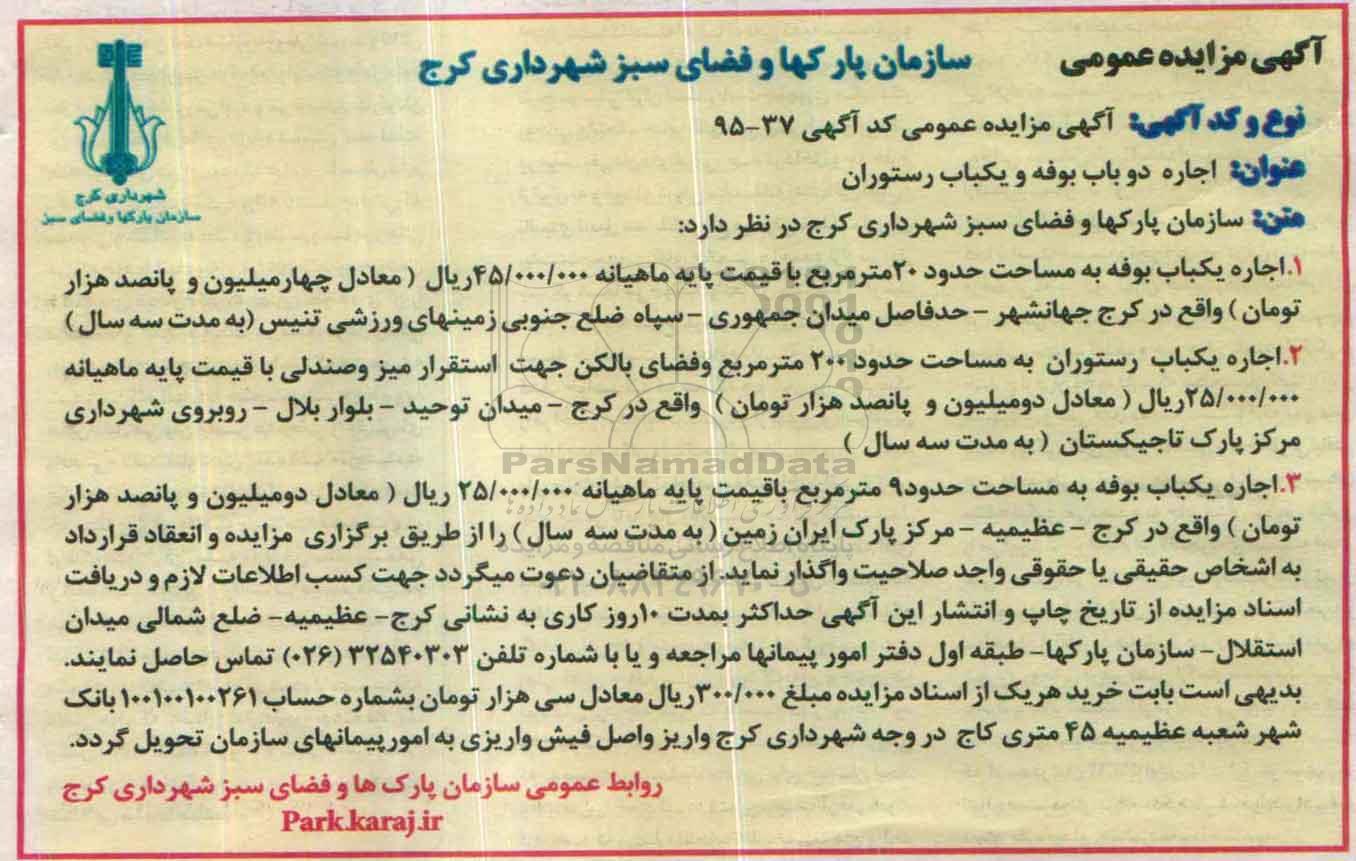 آگهی مزایده عمومی سازمان پارکها و فضای سبز شهرداری کرج
شهرداری کرج
سازمان پارکها وفضای سبز
نوع و کد آگهی: آگهی مزایده عمومی کد آگهی ۳۷-۹۵
عنوان: اجاره دو باب بوفه و یکباب رستوران
متن: سازمان پارکها و فضای سبز شهرداری کرج در نظر دارد:
۱.اجاره یکباب بوفه به مساحت حدود ۲۰مترمربع با قیمت پایه ماهیانه ۴۵/۰۰۰/۰۰۰ریال ( معادل چهارمیلیون و پانصد هزار
تومان ) واقع در کرج جهانشهر – حدفاصل میدان جمهوری – سپاه ضلع جنوبی زمینهای ورزشی تنیس (به مدت سه سال )
۲.اجاره یکباب رستوران به مساحت حدود ۲۰۰ مترمربع وفضای بالکن جهت استقرار میز وصندلی با قیمت پایه ماهیانه
۲۵/۰۰۰/۰۰۰ریال ( معادل دومیلیون و پانصد هزار تومان ) واقع در کرج – میدان توحید – بلوار بلال – روبروی شهرداری
مرکز پارک تاجیکستان ( به مدت سه سال )
۳.اجاره یکباب بوفه به مساحت حدود۹ مترمربع باقیمت پایه ماهیانه ۲۵/۰۰۰/۰۰۰ ریال ( معادل دومیلیون و پانصد هزار
تومان ) واقع در کرج – عظیمیه – مرکز پارک ایران زمین ( به مدت سه سال ) را از طریق برگزاری مزایده و انعقاد قرارداد
به اشخاص حقیقی یا حقوقی واجد صلاحیت واگذار نماید. از متقاضیان دعوت میگردد جهت کسب اطلاعات لازم و دریافت
اسناد مزایده از تاریخ چاپ و انتشار این آگهی حداکثر بمدت ۱۰روز کاری به نشانی کرج- عظیمیه- ضلع شمالی میدان
استقلال- سازمان پارکها- طبقه اول دفتر امور پیمانها مراجعه و یا با شماره تلفن ۳۲۵۴۰۳۰۳ (۰۲۶) تماس حاصل نمایند.
بدیهی است بابت خرید هریک از اسناد مزایده مبلغ ۳۰۰/۰۰۰ریال معادل سی هزار تومان بشماره حساب ۱۰۰۱۰۰۱۰۰۲۶۱ بانک
شهر شعبه عظیمیه ۴۵ متری کاج در وجه شهرداری کرج واریز واصل فیش واریزی به امورپیمانهای سازمان تحویل گردد.
روابط عمومی سازمان پارک ها و فضای سبز شهرداری کرج
Park.karaj.ir
ParsNamadData